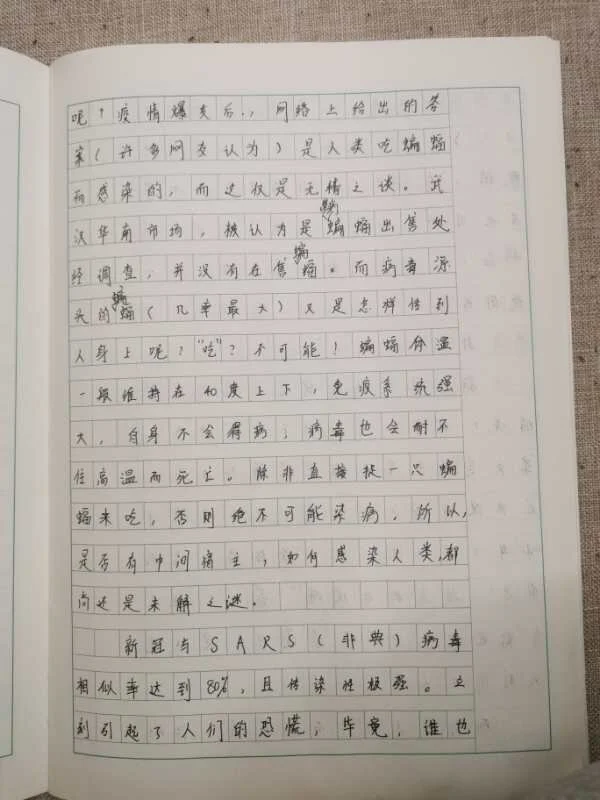 呢？疫情爆发后，网络上给出的答
案（许多网友认为）是人类吃蝙蝠
而感染的，而这仅是无情之谈。武
汉华南市场，被认为是蝙蝠出售处
经调查，并没有在售蝙蝠。而病毒源
头的蝙蝠（几率最大）又是怎样传到
人身上呢？“吃”？不可能！蝙蝠体温
一般维持在40度上下，免疫系统强
大，自身不会得病；病毒也会耐不
住高温而死亡。除非直接抓一只蝙
蝠来吃，否则绝不可能染病。所以，
是否有中间宿主，如何感染人类，都
尚还是未解之谜。
新冠与SARS（非典）病毒
相似率达到80%，且传染性极强。立
刻引起了人们的恐慌；毕竟，谁也